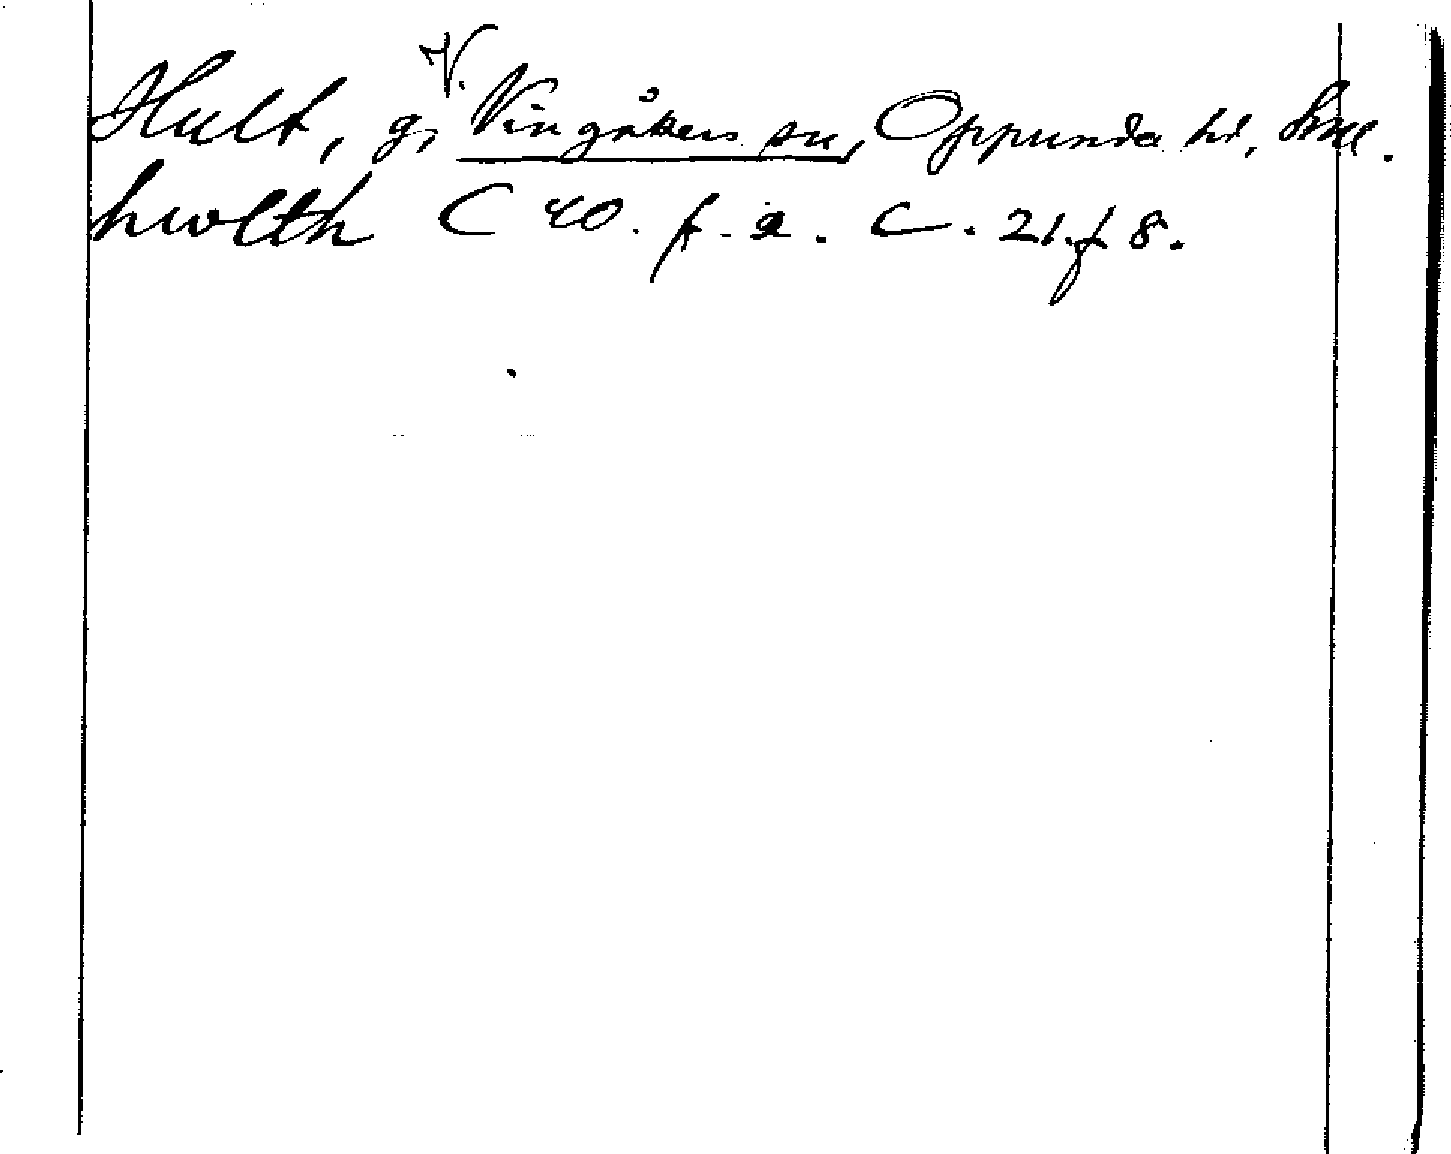 Hult, g, V. Vingåkers sn, Oppunda hd, Sml.
hwlth C 40. f. 2. C. 21. f 8.